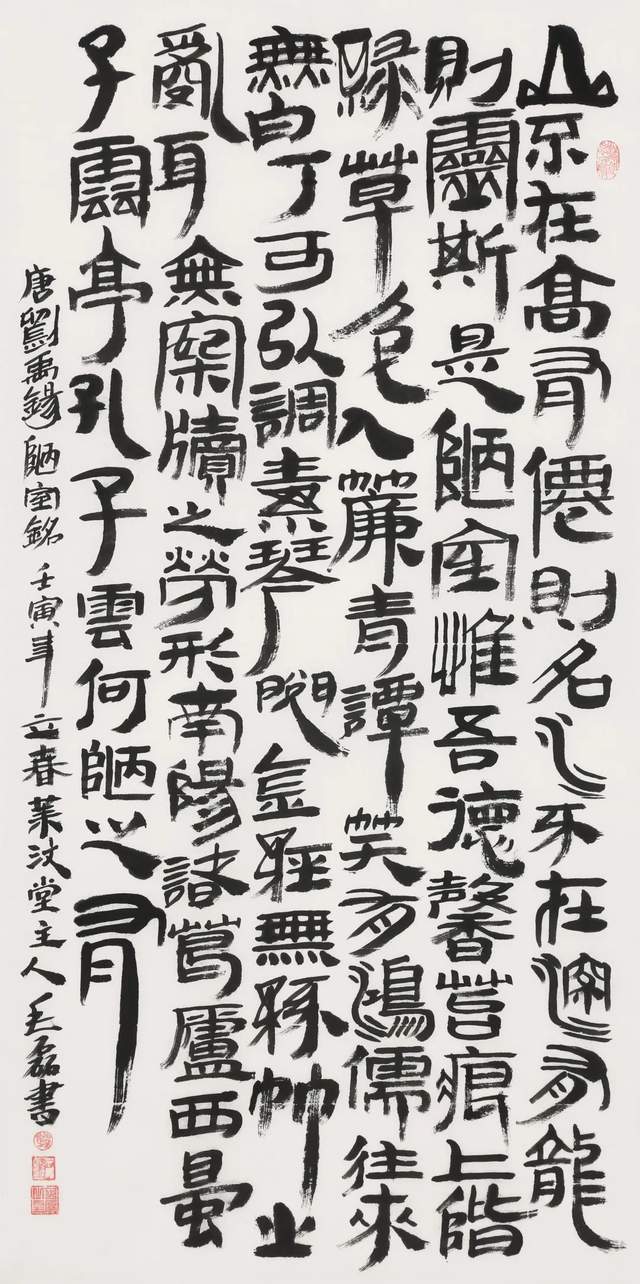 山不在高有僊則名水不在深有龍
則靈斯是陋室惟吾德馨苔痕上階
綠草色入簾青譚笑有鴻儒往來
無白丁可以調素琴閱金經無絲竹之
亂耳無案牘之勞形南陽諸葛廬西蜀
子雲亭孔子雲何陋之有
唐劉禹錫陋室銘 壬寅年立春汶堂主人毛磊書